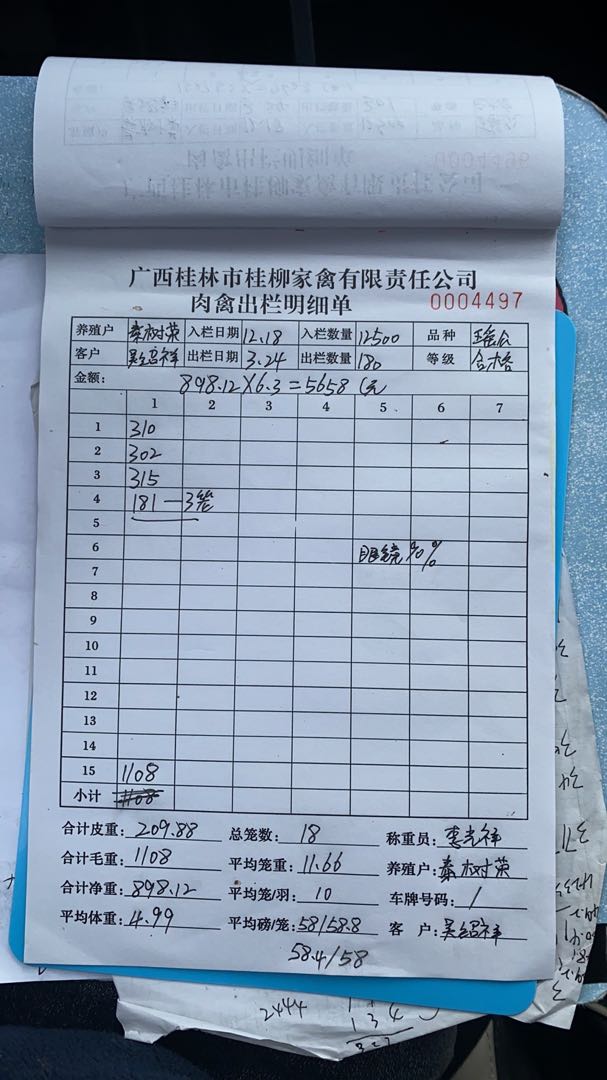 0004496
广西桂林市桂柳家禽有限责任公司
肉禽出栏明细单
0004497
养殖户 秦树荣 入栏日期 12.18 入栏数量 12500 品种 瑶
客户 吴绍祥 出栏日期 3.24 出栏数量 180 等级 合格
金额: 898.12×6.3=5658(元
1 2 3 4 5 6 7
1 310
2 302
3 315
4 181—3笼
5
6
眼绕90%
7
8
9
10
11
12
13
14
15 1108
小计 1108
合计皮重: 209.88 总笼数: 18 称重员: 李光祥
合计毛重: 1108 平均笼重: 11.66 养殖户: 秦树荣
合计净重: 898.12 平均笼/羽: 10 车牌号码: /
平均体重: 4.99 平均磅/笼: 58/58.8 客 户: 吴绍祥
58.4/58
2444
134